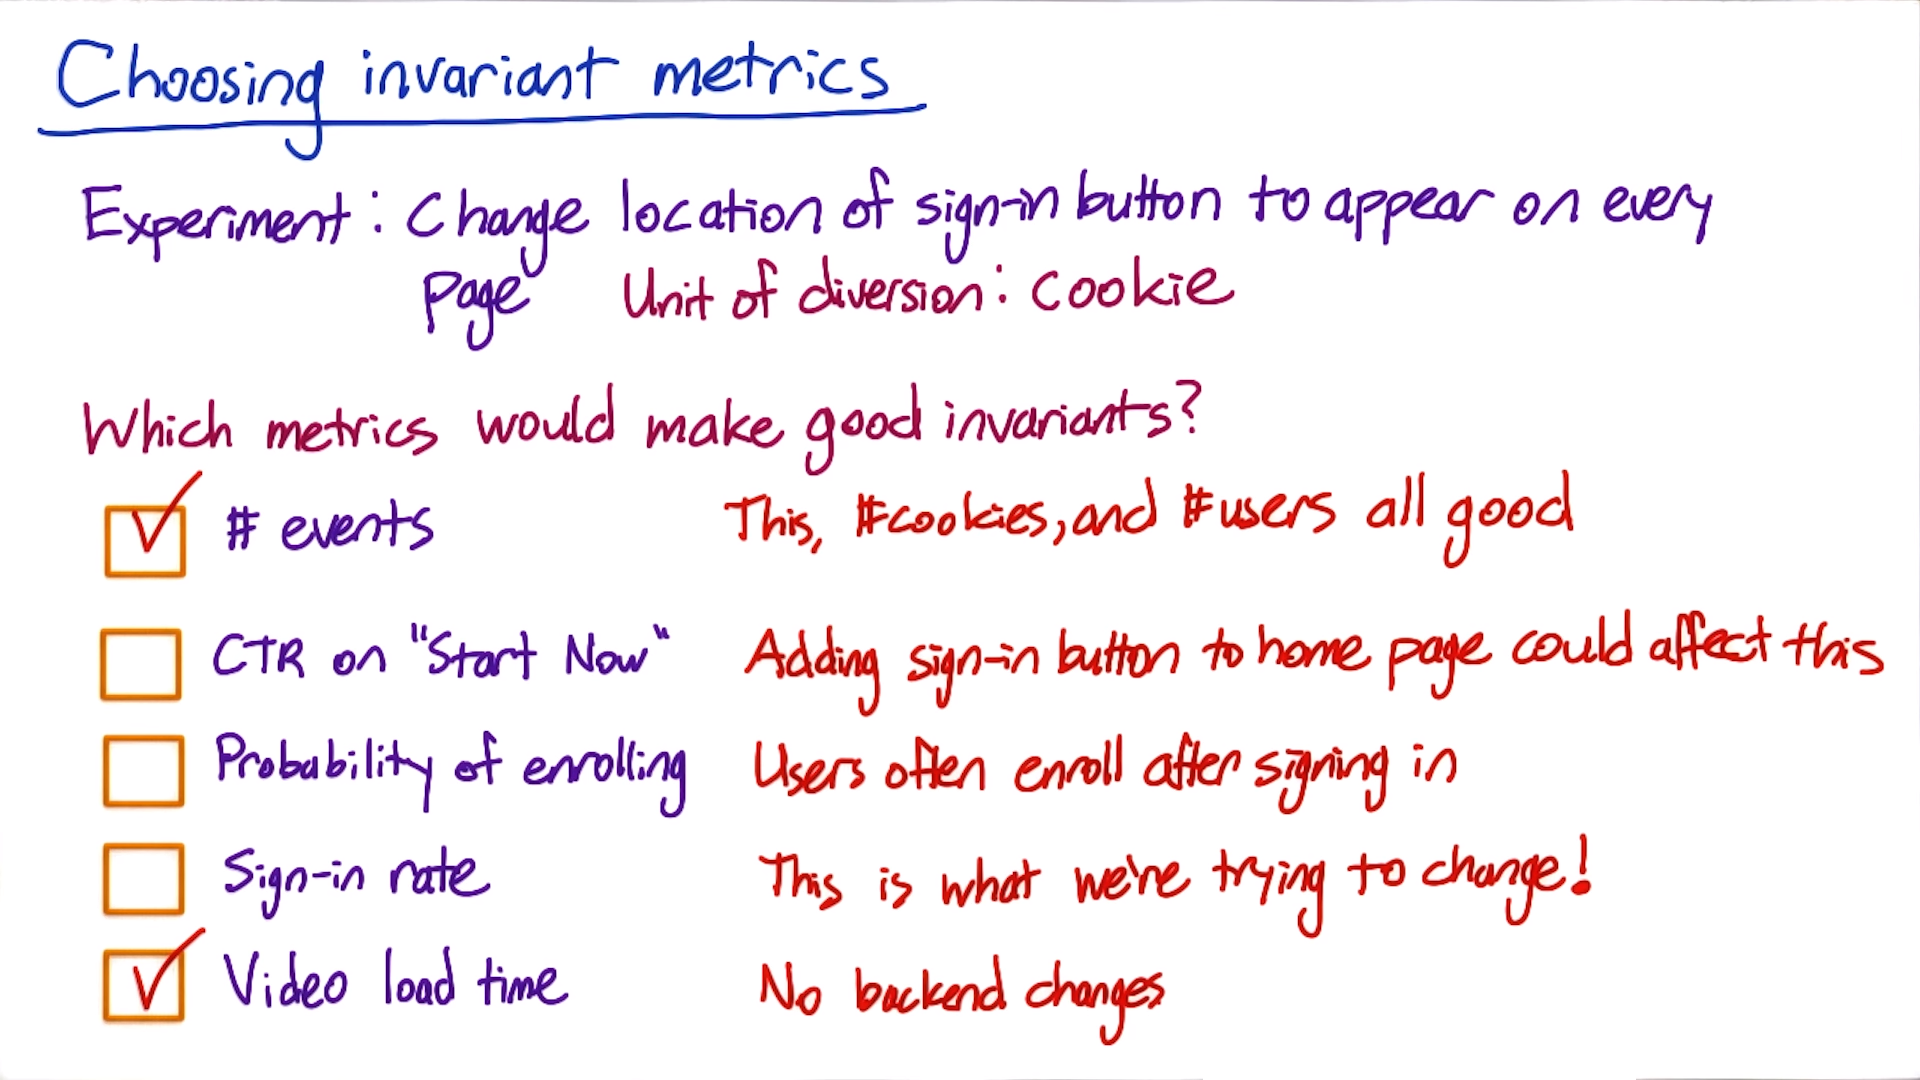 Choosing invariant metrics
Experiment: Change location of sign-in button to appear on every
page Unit of diversion: cookie
Which metrics would make good invariants?
# events This, #cookies, and #users all good
CTR on "Start Now" Adding sign-in button to home page could affect this
Probability of enrolling Users often enroll after signing in
Sign-in rate This is what we're trying to change!
Video load time No backend changes